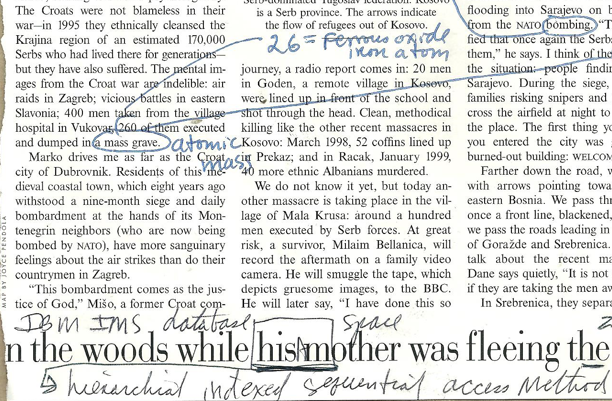 The Croats were not blameless in their
war—in 1995 they ethnically cleansed the
Krajina region of an estimated 170,000
Serbs who had lived there for generations—
but they have also suffered. The mental im-
ages from the Croat war are indelible: air
raids in Zagreb; vicious battles in eastern
Slavonia; 400 men taken from the village
hospital in Vukovar, 260 of them executed
and dumped in a mass grave.
atomic
mass
Marko drives me as far as the Croat
city of Dubrovnik. Residents of this me-
dieval coastal town, which eight years ago
withstood a nine-month siege and daily
bombardment at the hands of its Mon-
tenegrin neighbors (who are now being
bombed by NATO), have more sanguinary
feelings about the air strikes than do their
countrymen in Zagreb.
"This bombardment comes as the jus-
tice of God," Mišo, a former Croat com-
MAP BY JOYCE PENDOLA
Serb-dominated Yugoslav federation. Kosovo
is a Serb province. The arrows indicate
the flow of refugees out of Kosovo.
26 = Ferrous oxide
iron atom
journey, a radio report comes in: 20 men
in Goden, a remote village in Kosovo,
were lined up in front of the school and
shot through the head. Clean, methodical
killing like the other recent massacres in
Kosovo: March 1998, 52 coffins lined up
in Prekaz; and in Racak, January 1999,
40 more ethnic Albanians murdered.
We do not know it yet, but today an-
other massacre is taking place in the vil-
lage of Mala Krusa: around a hundred
men executed by Serb forces. At great
risk, a survivor, Milaim Bellanica, will
record the aftermath on a family video
camera. He will smuggle the tape, which
depicts gruesome images, to the BBC.
He will later say, "I have done this so
flooding into Sarajevo on b
from the NATO bombing. "T
fied that once again the Serbs
them," he says. I think of the
the situation: people findin
Sarajevo. During the siege,
families risking snipers and
cross the airfield at night to
the place. The first thing y
you entered the city was g
burned-out building: WELCOM
Farther down the road, w
with arrows pointing towa
eastern Bosnia. We pass thr
once a front line, blackened,
we pass the roads leading in
of Goražde and Srebrenica.
talk about the recent ma
Dane says quietly, "It is not
if they are taking the men aw
In Srebrenica, they separa
IBM IMS database space
n the woods while his mother was fleeing the
hierarchial indexed sequential access method